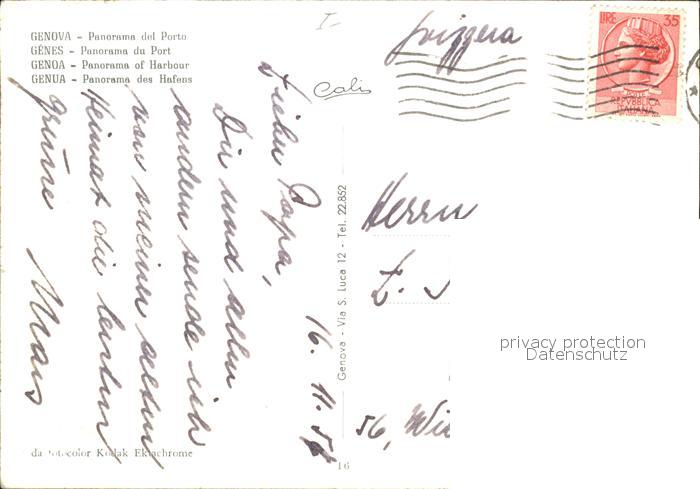 GENOVA - Panorama del Porto
GÊNES - Panorama du Port
GENOA - Panorama of Harbour
GENUA - Panorama des Hafens
I-
Svizzera
LIRE 35
POSTE
REPVBBLICA
ITALIANA
Calis
16. 11. 5
Lieber Papa,
Dir und allen
andern sende ich
von meiner alten
Heimat die besten
Grüsse
Genova - Via S. Luca 12 - Tel. 22.852
Herrn
E.
56, Wi
privacy protection
Datenschutz
da fotocolor Kodak Ektachrome
16